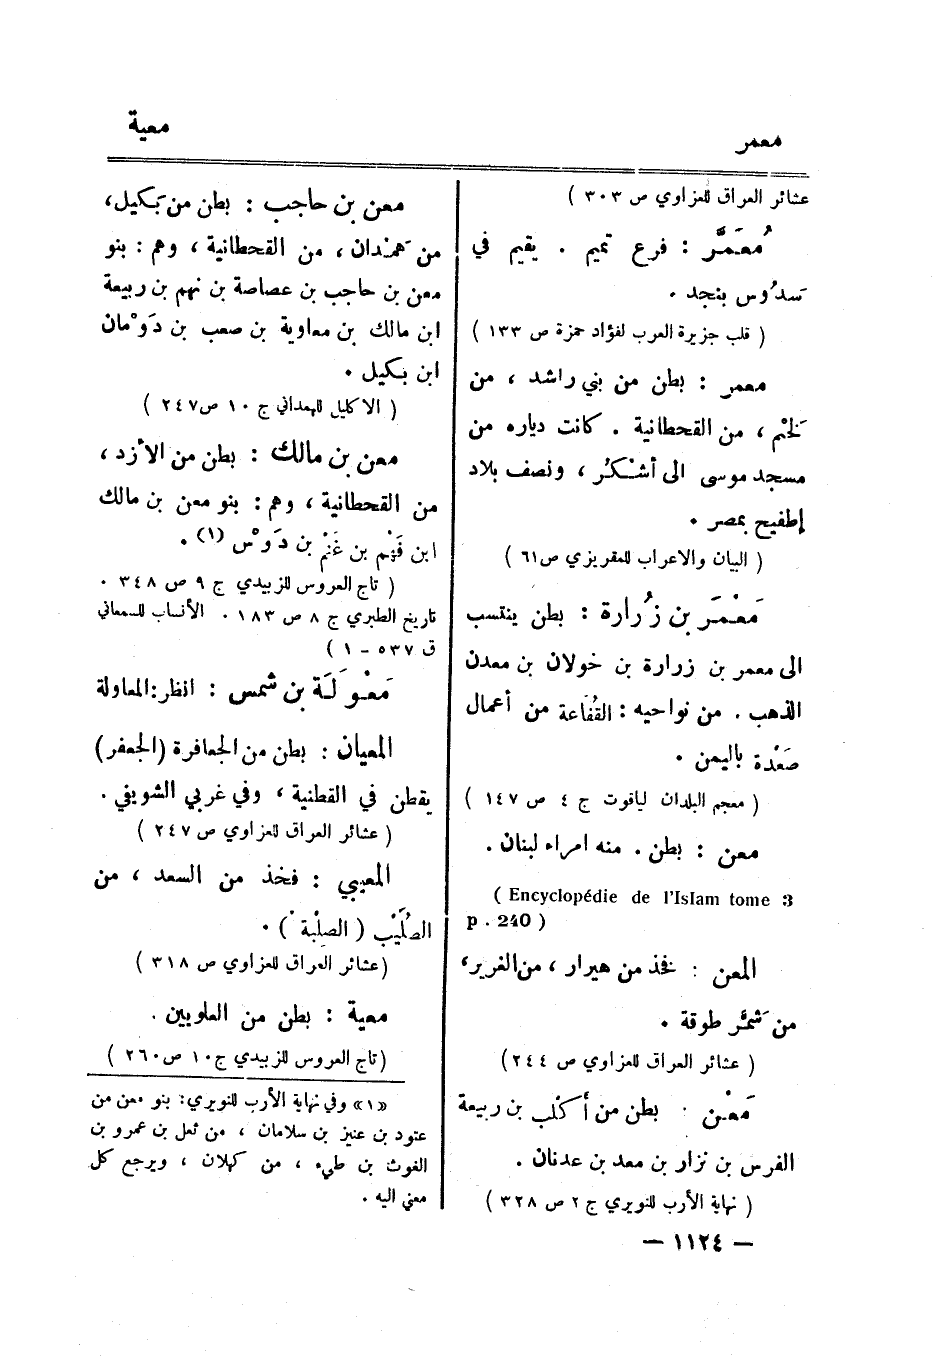 معمر
معية
عشائر العراق للعزاوي ص ٣٠٣ )
مُعَمَّر : فرع تميم . يقيم في
سَدُوس بنجد .
( قلب جزيرة العرب لفؤاد حمزة ص ١٣٣ )
معمر : بطن من بني راشد ، من
لَخْم ، من القحطانية . كانت دياره من
مسجد موسى الى أشْكُر ، ونصف بلاد
إطفيح بمصر .
( البيان والاعراب للمقريزي ص ٦١ )
مَعْمَر بن زُرارة : بطن ينتسب
الى معمر بن زرارة بن خولان بن معدن
الذهب . من نواحيه : القُفَاعة من أعمال
صَعْدة باليمن .
( معجم البلدان لياقوت ج ٤ ص ١٤٧ )
معن : بطن . منه امراء لبنان .
( Encyclopédie de l'Islam tome 3
p . 240 )
المعن : فخذ من هيرار ، من الغرير ،
من شَمَّر طوقة .
( عشائر العراق للعزاوي ص ٢٤٤ )
مَعْن : بطن من أكْلب بن ربيعة
الفرس بن نزار بن معد بن عدنان .
( نهاية الأرب للنويري ج ٢ ص ٣٢٨ )
معن بن حاجب : بطن من بَكيل ،
من هَمْدان ، من القحطانية ، وهم : بنو
معن بن حاجب بن عصاصة بن نهم بن ربيعة
ابن مالك بن معاوية بن صعب بن دَوْمان
ابن بكيل .
( الاكليل للهمداني ج ١٠ ص ٢٤٧ )
معن بن مالك : بطن من الأزد ،
من القحطانية ، وهم : بنو معن بن مالك
ابن فَهْم بن غَنْم بن دَوْس (١) .
( تاج العروس للزبيدي ج ٩ ص ٣٤٨ .
تاريخ الطبري ج ٨ ص ١٨٣ . الأنساب للسمعاني
ق ٥٣٧ - ١ )
مَعْوَلَة بن شمس : انظر : المعاولة
المعيان : بطن من الجعافرة (الجعفر)
يقطن في القطنية ، وفي غربي الشويفي .
( عشائر العراق للعزاوي ص ٢٤٧ )
المعيبي : فخذ من السعد ، من
الصُلَيْب ( الصلْبة ) .
(عشائر العراق للعزاوي ص ٣١٨ )
معية : بطن من العلويين .
(تاج العروس للزبيدي ج ١٠ ص ٢٦٠ )
«١» وفي نهاية الأرب للنويري : بنو معن من
عتود بن عنيز بن سلامان ، من ثعل بن عمرو بن
الغوث بن طيء ، من كهلان ، ويرجع كل
معني اليه .
— ١١٢٤ —